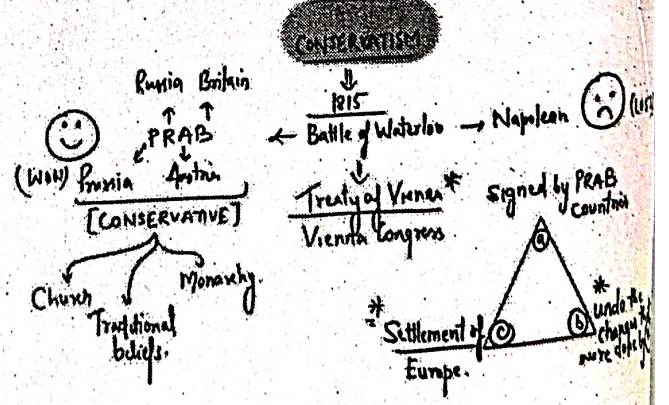 CONSERVATISM
1815
Battle of Waterloo
Napolean
(LOST)
Russia Britain
PRAB
(WON) Prussia Austria
[CONSERVATIVE]
Church
Traditional
beliefs.
Monarchy.
Treaty of VIENNA *
Vienna Congress
Signed by PRAB
Countries
a
b
c
* Settlement of
Europe.
*
undo the
changes
were done by